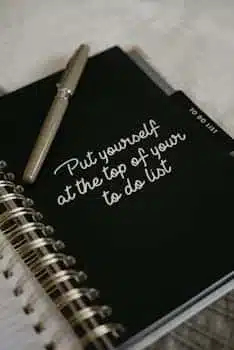 Put yourself
at the top of your
to do list
TO DO LIST